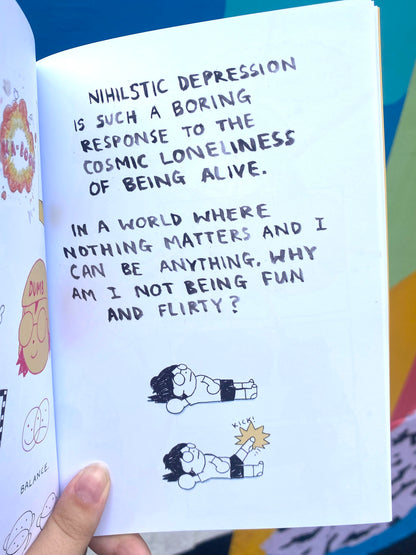 KA-BOOM
DUMB
BALANCE.
NIHILSTIC DEPRESSION
IS SUCH A BORING
RESPONSE TO THE
COSMIC LONELINESS
OF BEING ALIVE.
IN A WORLD WHERE
NOTHING MATTERS AND I
CAN BE ANYTHING, WHY
AM I NOT BEING FUN
AND FLIRTY?
KICK!